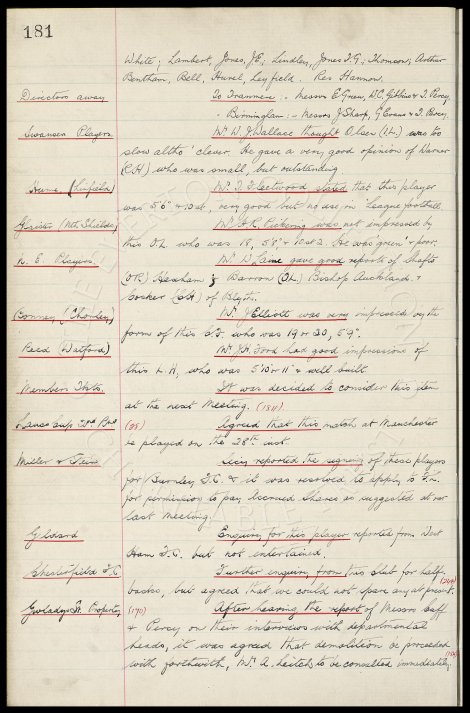 181
White; Lambert, Jones, J.E.; Lindley, Jones T.G.; Thomson; Arthur
Bentham, Bell, Hurel, Leyfield. Res Hannon.
Directors away To Tranmere :- Messrs E Green, W.C. Gibbins & T. Percy.
- Birmingham - Messrs J Sharp, G Evans & T. Percy.
Swansea Players Mr W J Wallace thought Olsen (I.L.) was
slow altho' clever. He gave a very good opinion of Warner
(R.H.) who was small, but outstanding.
(Linfield) Mr T. Fleetwood stated that this player
was 5'6" & 10 st, very good but no use in League football.
(Nth Shields) Mr H.R. Pickering was not impressed by
this O.L. who was 18, 5'8" & 10 st 2. He was green & poor.
N. E. Players. Mr W. gave good reports of Shafto
(O.R.) Hexham ; Barron (O.L.) Bishop Auckland &
(C.H.) of Blyth.
(Chorley) Mr J Elliott was very impressed by the
form of this C.F. who was 19 or 20, 5'9".
Reed (Watford) Mr J.H. Ford had good impressions of
this L.H, who was 5'10 or 11" & well built.
Members Tkts. It was decided to consider this item
at the next Meeting. (184)
Lancs Cup 2nd Rnd (95) Agreed that this match at Manchester
be played on the 28th inst.
Miller & Secy reported the signing of these players
for Burnley F.C. & it was resolved to apply to F.L.
for permission to pay Accrued Shares as suggested at our
last Meeting.
Gillard Enquiry for this player reported from West
Ham F.C. but not entertained.
Chesterfield F.C Further enquiry from this club for half
backs, but agreed that we could not spare any at present.
Gwladys St. Property (170) After hearing the report of Messrs Cuff
& Percy on their interviews with departmental
heads, it was agreed that demolition be proceeded
with forthwith, Mr A. Leitch to be consulted immediately.